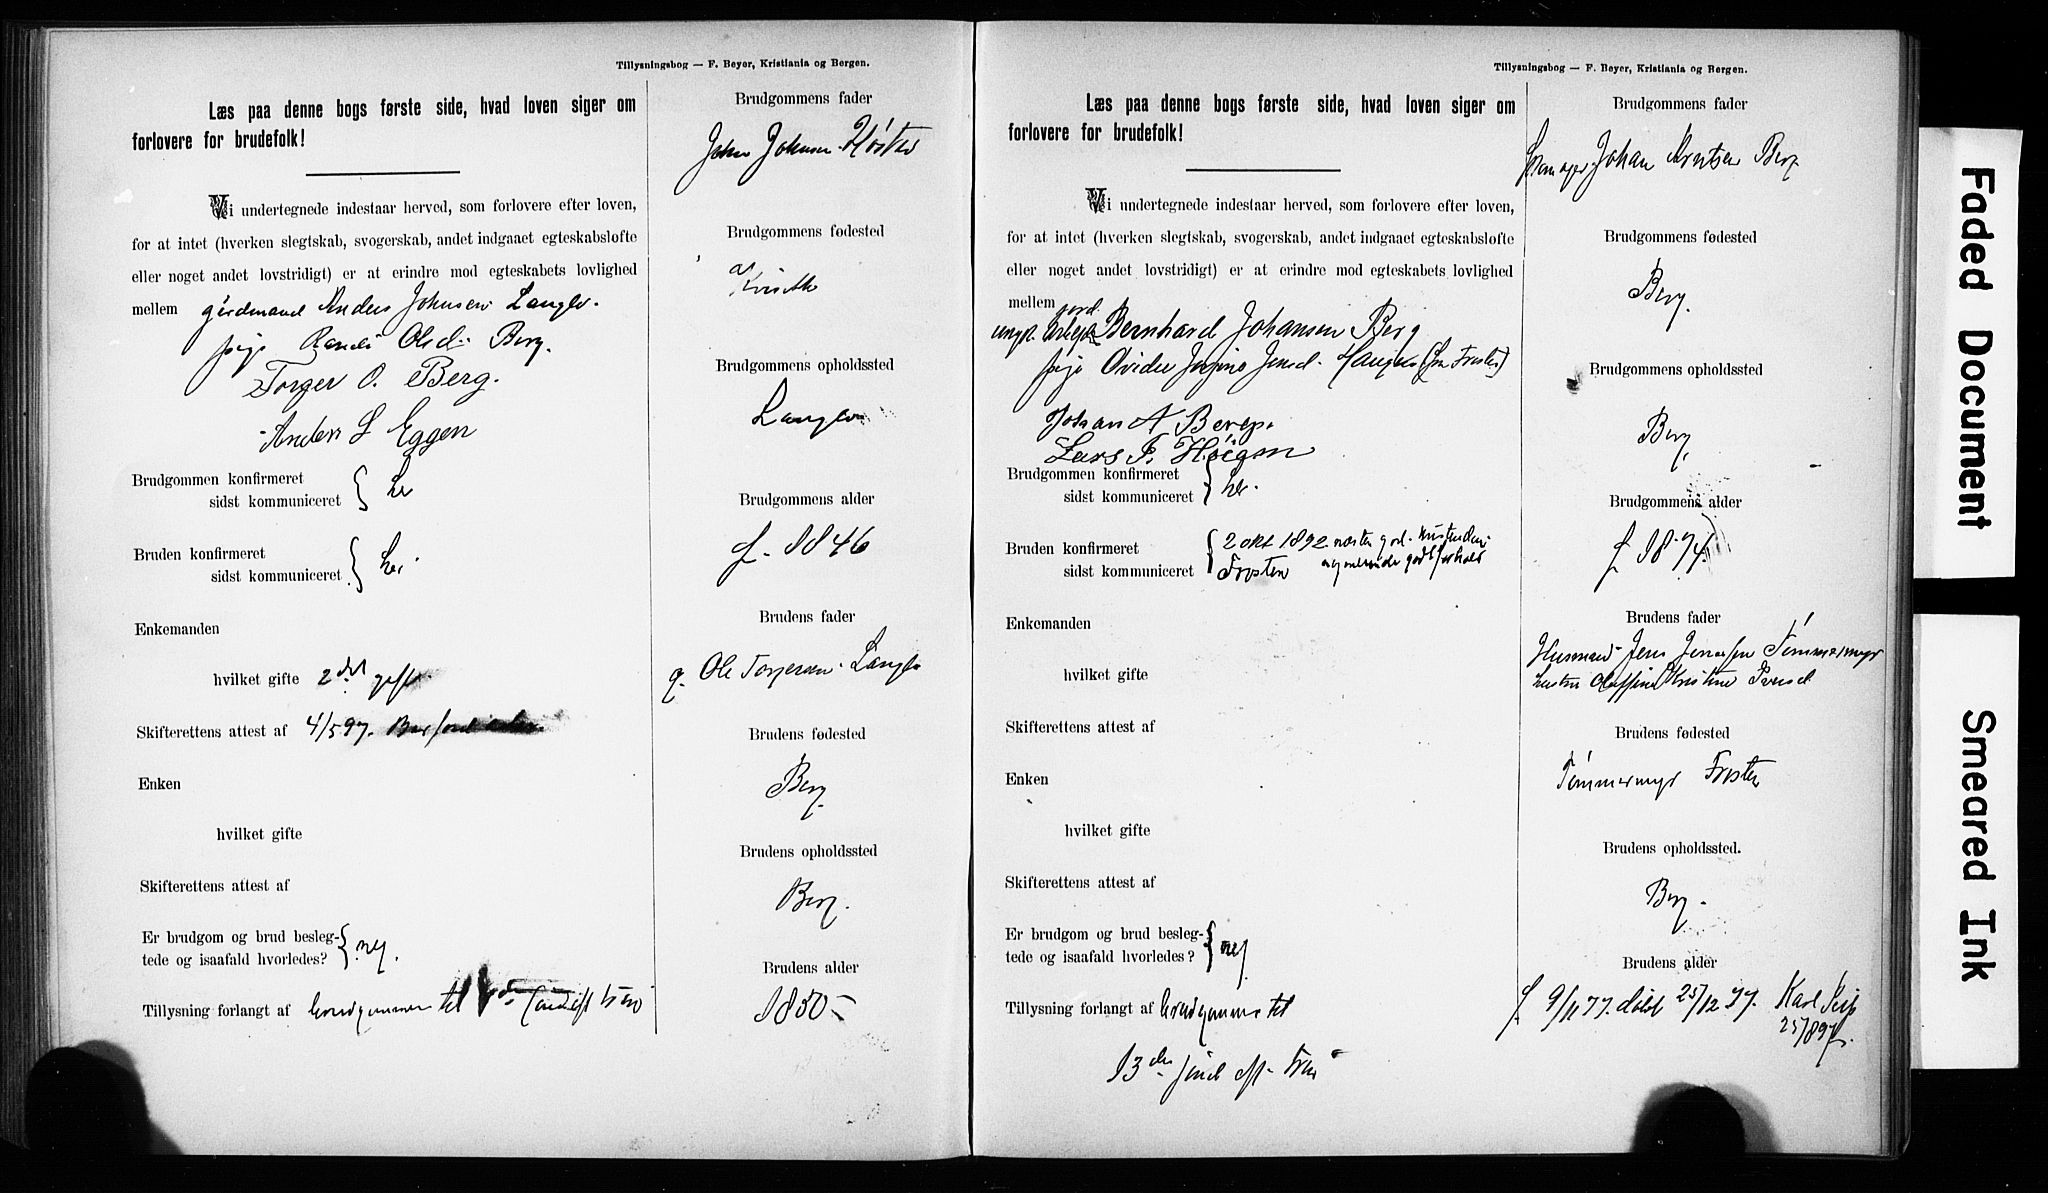 Tillysningsbog — F. Beyer, Kristiania og Bergen.
Læs paa denne bogs første side, hvad loven siger om
forlovere for brudefolk!
Vi undertegnede indestaar herved, som forlovere efter loven,
for at intet (hverken slegtskab, svogerskab, andet indgaaet egteskabsløfte
eller noget andet lovstridigt) er at erindre mod egteskabets lovlighed
mellem gårdmand Anders Johnsen Langlo.
pige Randi Olsd. Berg.
Torger O. Berg.
Anders L Eggen
Brudgommen konfirmeret
sidst kommuniceret } her
Bruden konfirmeret
sidst kommuniceret } her
Enkemanden
hvilket gifte 2det gifte
Skifterettens attest af 4/5 97.
Enken
hvilket gifte
Skifterettens attest af
Er brudgom og brud besleg-
tede og isaafald hvorledes? } nej.
Tillysning forlangt af brudgommen til
Brudgommens fader
John Johnsen
Brudgommens fødested
Brudgommens opholdssted
Langlo
Brudgommens alder
f. 1846
Brudens fader
g. Ole Torgersen Langlo
Brudens fødested
Berg
Brudens opholdssted
Berg.
Brudens alder
1850
Tillysningsbog — F. Beyer, Kristiania og Bergen.
Læs paa denne bogs første side, hvad loven siger om
forlovere for brudefolk!
Vi undertegnede indestaar herved, som forlovere efter loven,
for at intet (hverken slegtskab, svogerskab, andet indgaaet egteskabsløfte
eller noget andet lovstridigt) er at erindre mod egteskabets lovlighed
mellem
ungk. Bernhard Johansen Berg
pige Jensd. (fra Frosten)
Johan A Berg.
Lars
Brudgommen konfirmeret
sidst kommuniceret } her.
Bruden konfirmeret
sidst kommuniceret { 2 okt 1892
Frosten
Enkemanden
hvilket gifte
Skifterettens attest af
Enken
hvilket gifte
Skifterettens attest af
Er brudgom og brud besleg-
tede og isaafald hvorledes? } nej
Tillysning forlangt af brudgommen til
13de
Brudgommens fader
Johan Arntsen Berg
Brudgommens fødested
Berg.
Brudgommens opholdssted
Berg.
Brudgommens alder
f. 1874
Brudens fader
Husmand Jens Jensen Tømmermyr
Kristine
Brudens fødested
Tømmermyr Frosten
Brudens opholdssted.
Berg.
Brudens alder
f. 9/11 77. døbt 25/12 77. Karl
25/8 97.
Faded Document
Smeared Ink